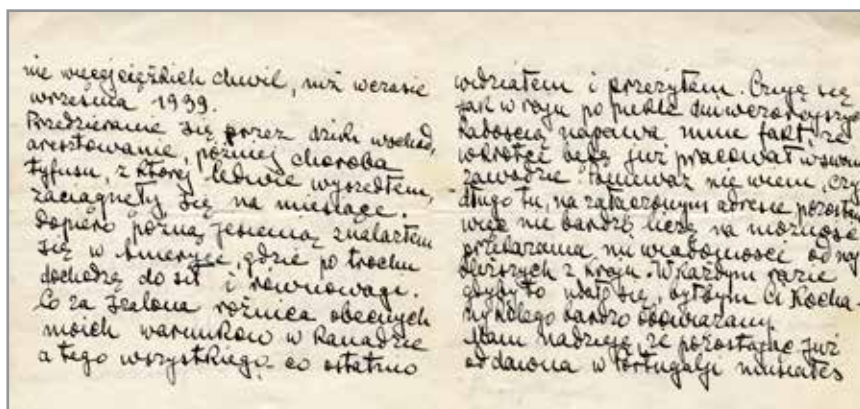 nie więcej ciężkich chwil, niż wczasie
września 1939.
Przedzieranie się przez dziki wschód,
aresztowanie, później choroba
tyfusu, z której ledwie wyszedłem,
zaciągnęły się na miesiące.
Dopiero późną jesienią znalazłem
się w Ameryce, gdzie po trochu
dochodzę do sił i równowagi.
Co za szalona różnica obecnych
moich warunków w Kanadzie
a tego wszystkiego co ostatnio
widziałem i przeżyłem. Czuję się
jak w raju po piekle dniwczorajszych
Radością napawa mnie fakt, że
wkrótce będę już pracował wswoim
zawodzie. Ponieważ nie wiem, czy
długo tu, na załączonym adresie pozostanę
więc nie bardzo liczę na możność
przekazania mi wiadomości od naj
bliższych z kraju. Wkażdym razie
gdyby to udało się, byłbym Ci Kocha-
ny Kolego bardzo obowiązany.
Mam nadzieję, że pozostając już
od dawna w Portugalji musiałeś